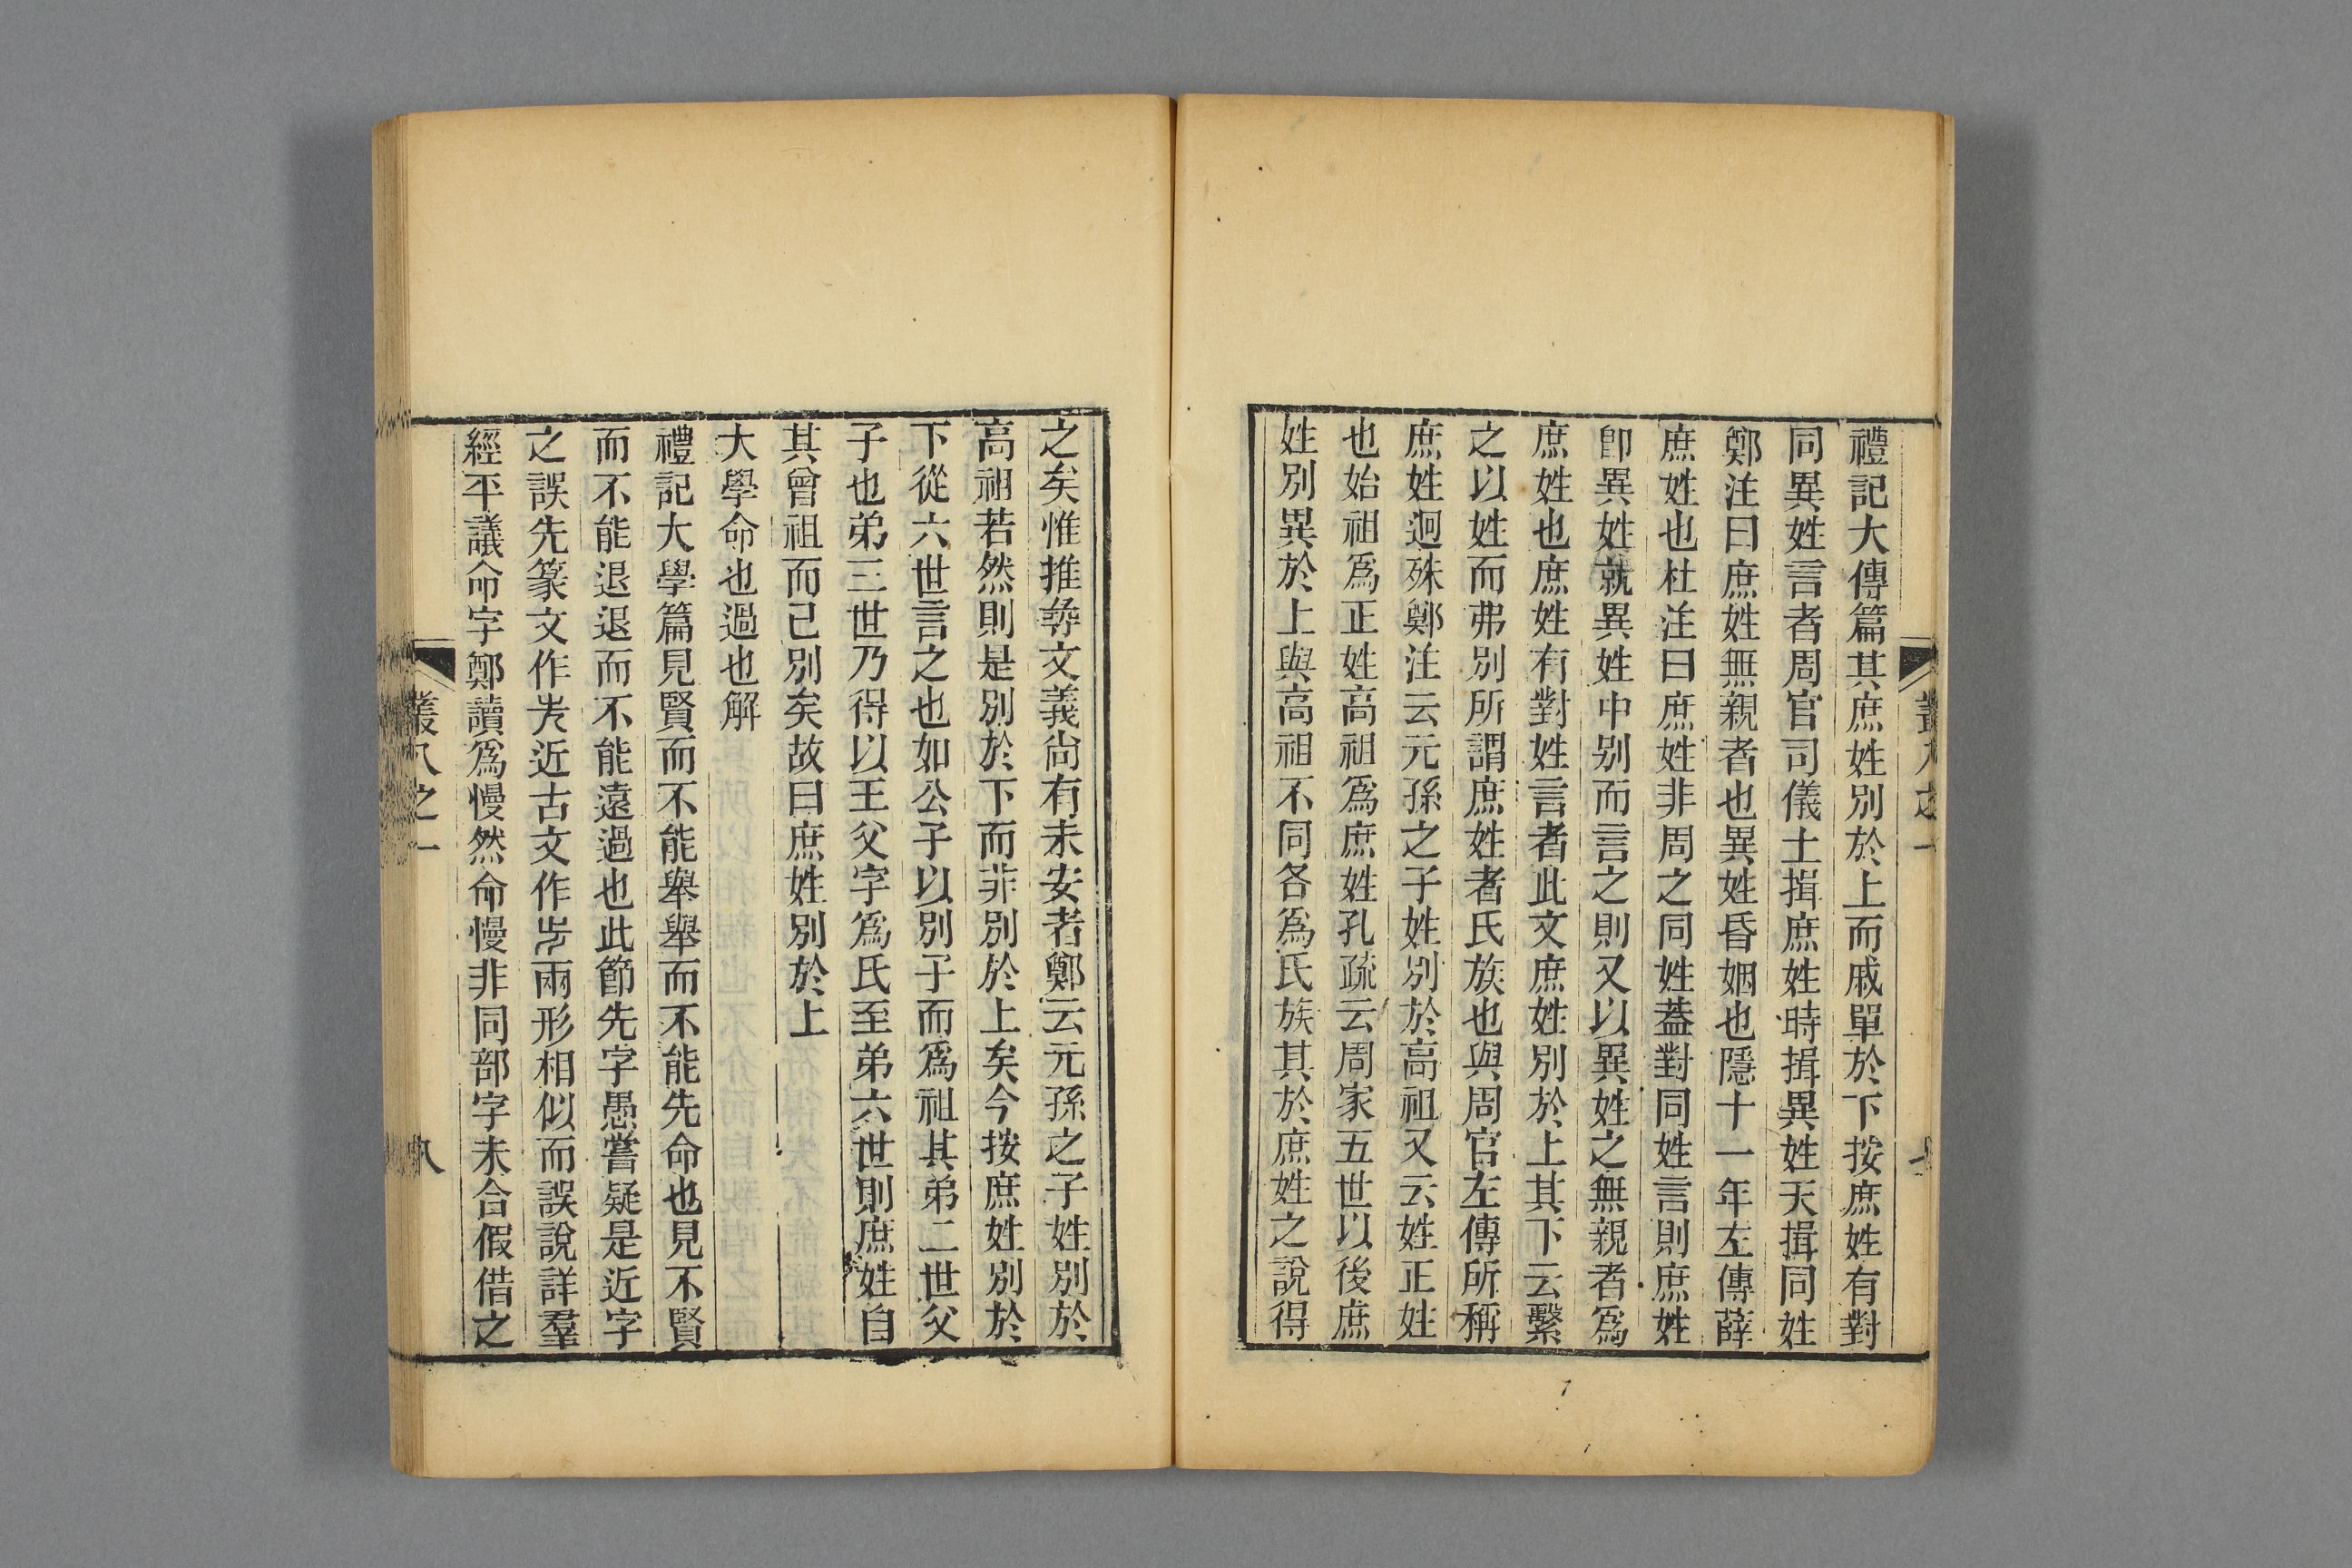 禮記大傳篇其庶姓別於上而戚單於下按庶姓有對
同異姓言者周官司儀土揖庶姓時揖異姓天揖同姓
鄭注曰庶姓無親者也異姓昏姻也隱十一年左傳薛
庶姓也杜注曰庶姓非周之同姓葢對同姓言則庶姓
卽異姓就異姓中別而言之則又以異姓之無親者爲
庶姓也庶姓有對姓言者此文庶姓別於上其下云繫
之以姓而弗別所謂庶姓者氏族也與周官左傳所稱
庶姓迥殊鄭注云元孫之子姓別於高祖又云姓正姓
也始祖爲正姓高祖爲庶姓孔疏云周家五世以後庶
姓別異於上與高祖不同各爲氏族其於庶姓之說得
之矣惟推尋文義尙有未安者鄭云元孫之子姓別於
高祖若然則是別於下而非別於上矣今按庶姓別於
下從六世言之也如公子以別子而爲祖其弟二世父
子也弟三世乃得以王父字爲氏至弟六世則庶姓自
其曾祖而已別矣故曰庶姓別於上
大學命也過也解
禮記大學篇見賢而不能舉舉而不能先命也見不賢
而不能退退而不能遠過也此節先字愚嘗疑是近字
之誤先篆文作近古文作兩形相似而誤說詳羣
經平議命字鄭讀爲慢然命慢非同部字未合假借之
叢八之一
八